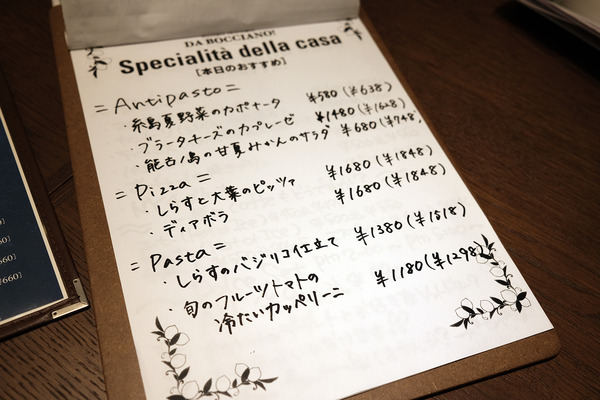 DA BOCCIANO!
Specialità della casa
[本日のおすすめ]
= Antipasto =
・糸島夏野菜のカポナータ ¥580 (¥638)
・ブラータチーズのカプレーゼ ¥1480 (¥1628)
・能古ノ島の甘夏みかんのサラダ ¥680 (¥748)
= Pizza =
・しらすと大葉のピッツァ ¥1680 (¥1848)
・ディアボラ ¥1680 (¥1848)
= Pasta =
・しらすのバジリコ仕立て ¥1380 (¥1518)
・旬のフルーツトマトの
冷たいカッペリーニ ¥1180 (¥1298)
660]